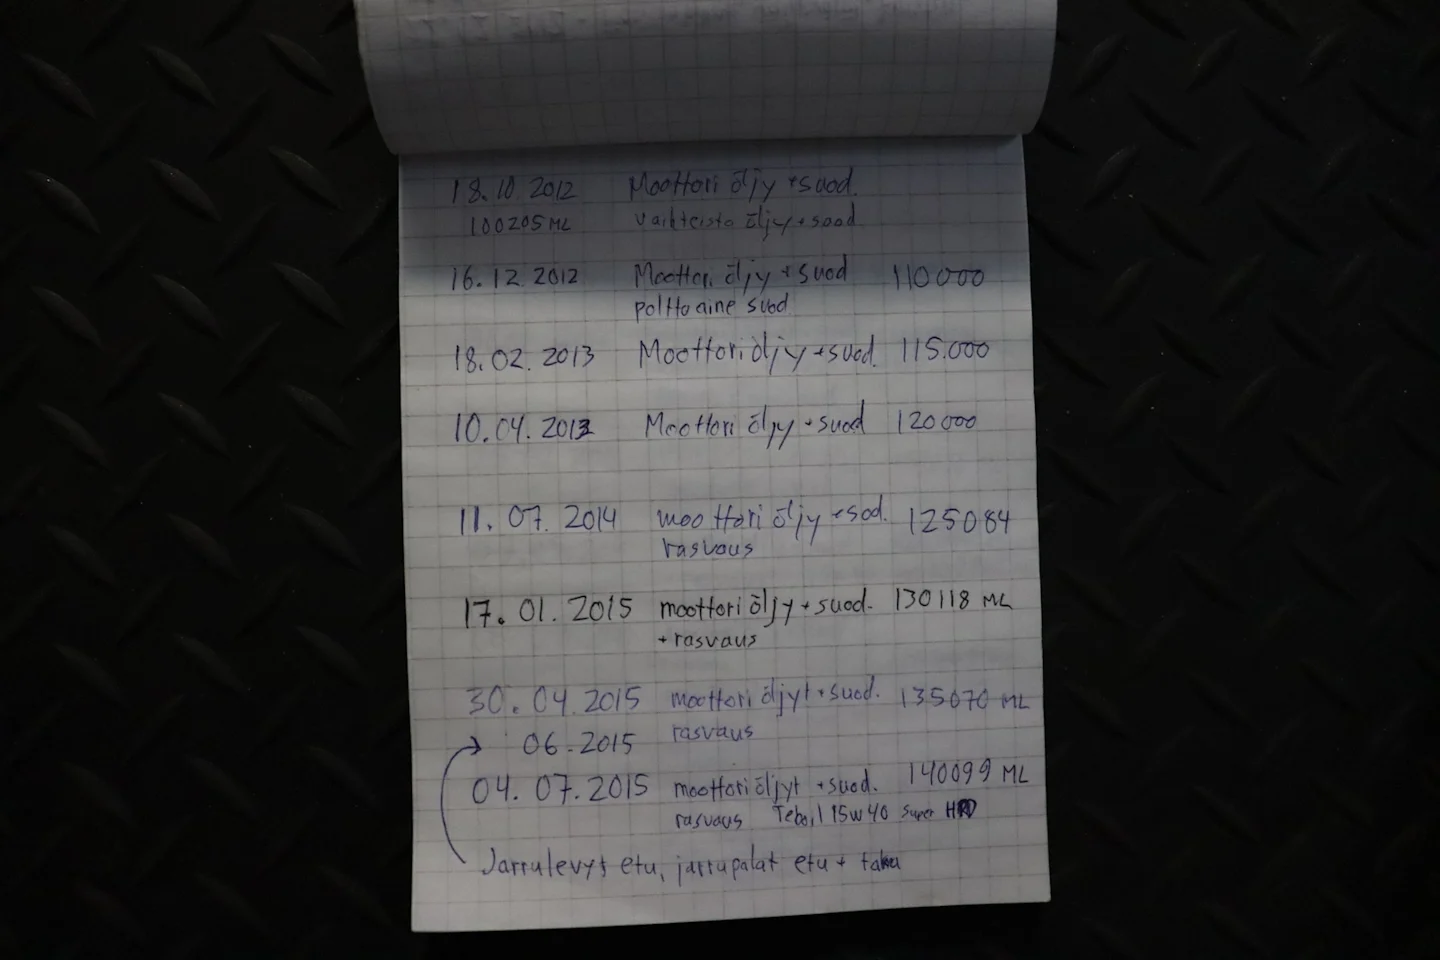 18.10.2012 Moottori öljy + suod.
100205 ML Vaihteisto öljy + suod
16.12.2012 Moottori öljy + suod 110000
polttoaine suod
18.02.2013 Moottori öljy + suod. 115.000
10.04.2013 Moottori öljy + suod 120000
11.07.2014 moottori öljy + sod. 125084
rasvaus
17.01.2015 moottori öljy + suod. 130118 ML
+ rasvaus
30.04.2015 moottori öljyt + suod. 135070 ML
rasvaus
06.2015
04.07.2015 moottori öljyt + suod. 140099 ML
rasvaus Teboil 15w40 super HPD
Jarrulevyt etu, jarrupalat etu + taka